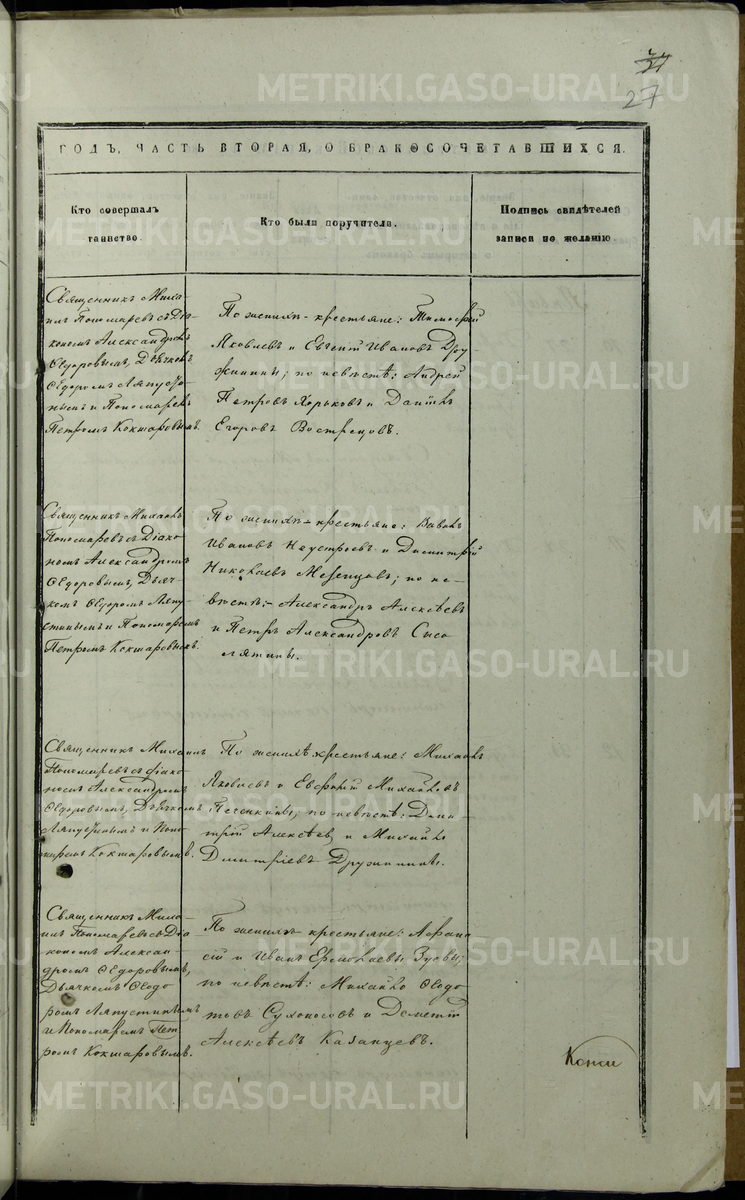 27
ГОДЪ, ЧАСТЬ ВТОРАЯ, О БРАКОСОЧЕТАВШИХСЯ.
Кто совершалъ
таинство.
Кто были поручители.
Подпись свидѣтелей
записи по желанію.
Священникъ Миха-
илъ Пономаревъ съ Діа-
кономъ Александромъ
Ѳедоровымъ, Дьячкомъ
Ѳедоромъ Ляпусти-
нымъ и Пономаремъ
Петромъ Кокшаровымъ.
По женихѣ - крестьяне: Тимофей
Яковлевъ и Евгеній Ивановъ Дру-
жинины; по невѣстѣ: Андрей
Петровъ Хорьковъ и Даніилъ
Егоровъ Вострецовъ.
Священникъ Михаилъ
Пономаревъ съ Діако-
номъ Александромъ
Ѳедоровымъ, Дьяч-
комъ Ѳедоромъ Ляпу-
стинымъ и Пономаремъ
Петромъ Кокшаровымъ.
По женихѣ - крестьяне:
Ивановъ Неустроевъ и Димитрій
Николаевъ Мезенцовъ; по не-
вѣстѣ: Александръ Алексѣевъ
и Петръ Александровъ Сысо
лятины.
Священникъ Михаилъ
Пономаревъ съ Діако-
номъ Александромъ
Ѳедоровымъ, Дьячкомъ
Ляпустинымъ и Поно-
маремъ Кокшаровымъ.
По женихѣ крестьяне: Михаилъ
Яковлевъ и Михайловъ
Печенкины; по невѣстѣ: Дми-
трій Алексѣевъ и Михайлъ
Дмитріевъ Дружинины.
Священникъ Миха-
илъ Пономаревъ съ Діа
кономъ Алексан
дромъ Ѳедоровымъ,
Дьячкомъ Ѳедо
ромъ Ляпустинымъ
и Пономаремъ Пет
ромъ Кокшаровымъ.
По женихѣ - крестьяне: Афана
сій и Иванъ Ермолаевы Зуевы;
по невѣстѣ: Михайло Ѳедо
товъ Сухоносовъ и Дементій
Алексѣевъ Казанцевъ.
METRIKI.GASO-URAL.RU